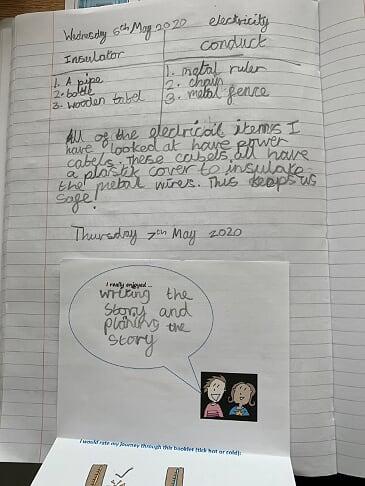 Wednesday 6th May 2020 electricity
Insulator conduct
1. A pipe 1. metal ruler
2. bottle 2. chain
3. wooden tabel 3. metal fence
All of the electricit items I
have looked at have power
cabels. These cabels all have
a plastik cover to insulate
the metal wires. This keeps us
safe!
Thursday 7th May 2020
I really enjoyed...
writing the
story and
planing the
story
I would rate my journey through this booklet (tick hot or cold):